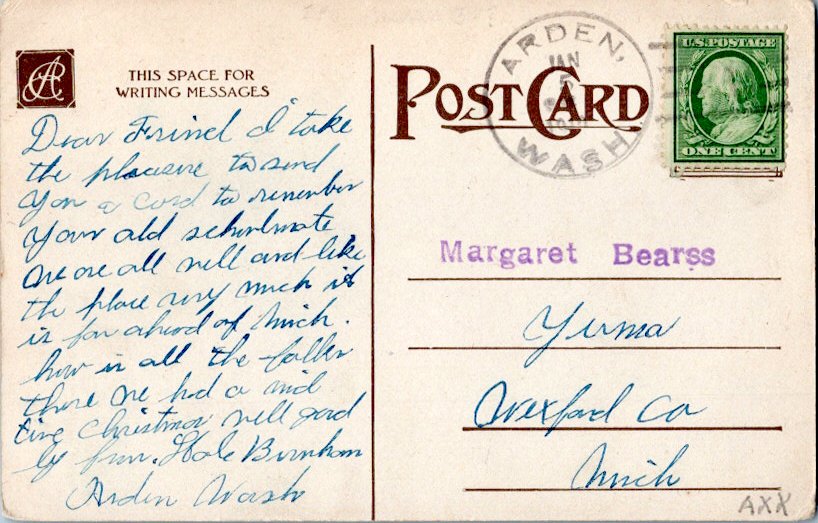 THIS SPACE FOR
WRITING MESSAGES
POST CARD
ARDEN,
JAN
5
WASH
U.S. POSTAGE
ONE CENT
Dear Frind I take
the pleasure to send
you a Card to remember
your old schoolmate
we are all well and like
the place very much it
is far ahead of Mich.
how is all the folks
there we had a
Christmas well good
by from. Burnham
Arden Wash
Margaret Bearss
Yuma
Wexford Co
Mich
AXX